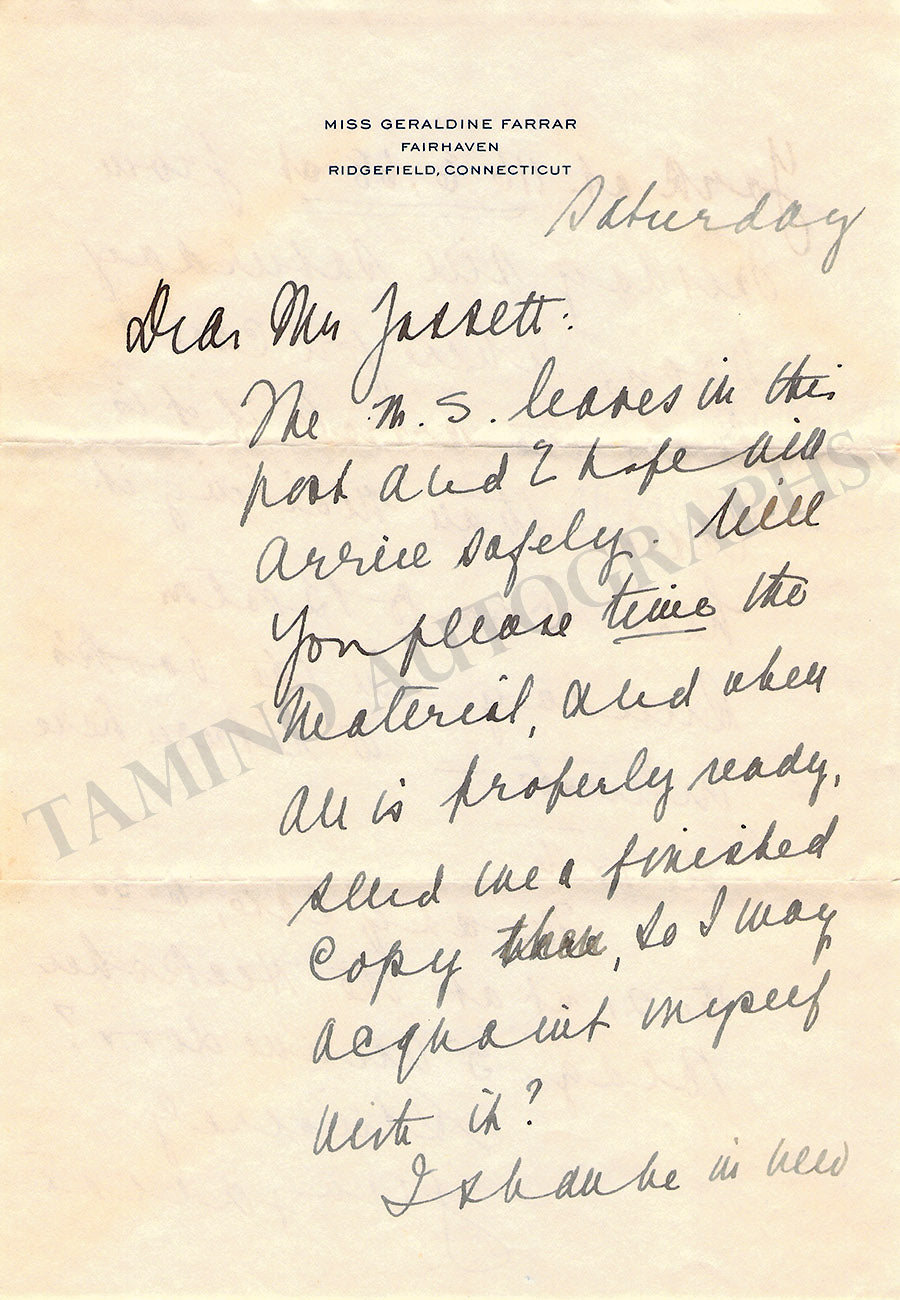 MISS GERALDINE FARRAR
FAIRHAVEN
RIDGEFIELD, CONNECTICUT
Saturday
Dear Mr
The M.S. leaves in this
post and I hope will
arrive safely. Will
you please time the
material, and when
all is properly ready,
send me a finished
copy, so I may
acquaint myself
with it?
I shall be in New
TAMINO AUTOGRAPHS